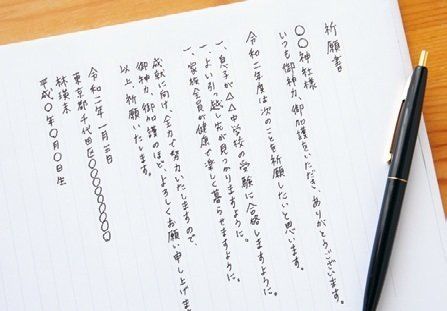 祈願書
○○神社様
いつも御神力、御加護をいただき、ありがとうございます。
令和二年度は次のことを祈願したいと思います。
一、息子が△△中学校の受験に合格しますように。
一、よい引っ越し先が見つかりますように。
一、家族全員が健康で楽しく暮らせますように。
成就に向け、全力で努力いたしますので、
御神力、御加護のほど、よろしくお願い申し上げま
以上、祈願いたします。
令和二年一月三日
東京都千代田区○○○○○○
林瑛未
平成○年○月○日生